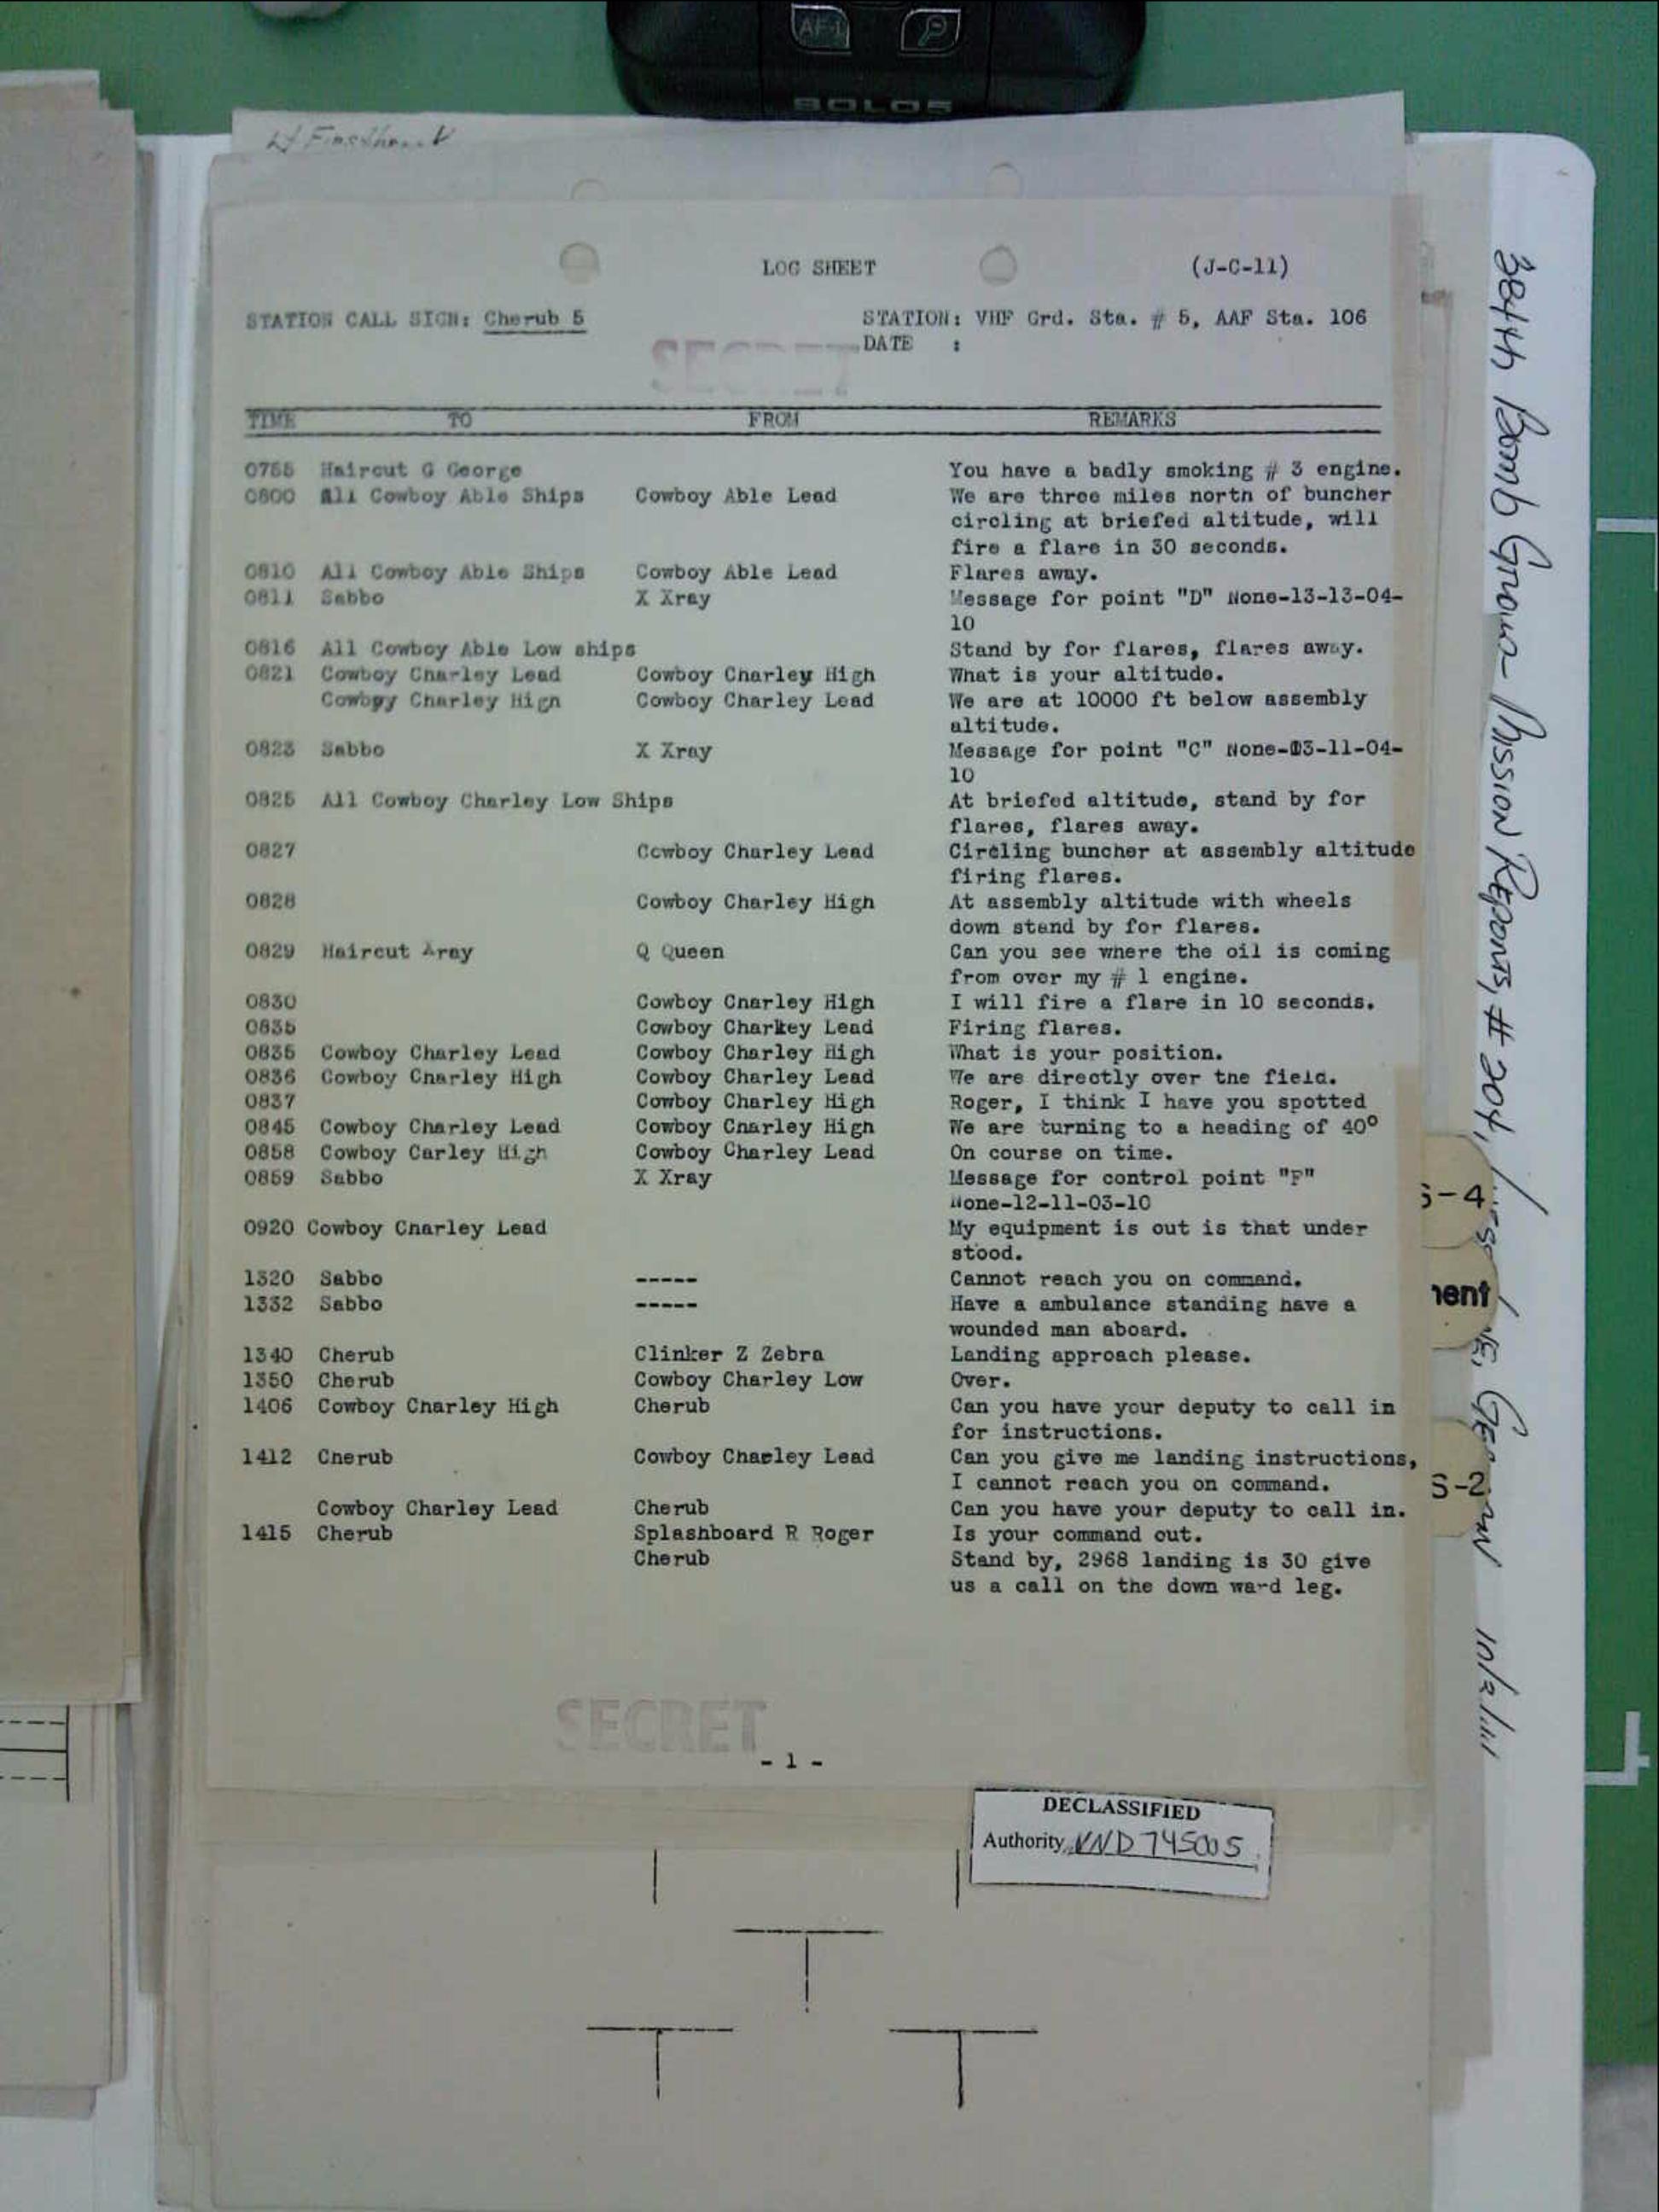 AF-L
BOLOS
Lt
LOG SHEET (J-C-11)
STATION CALL SIGN: Cherub 5 STATION: VHF Grd. Sta. # 5, AAF Sta. 106
DATE :
SECRET
TIME TO FROM REMARKS
0755 Haircut G George You have a badly smoking # 3 engine.
0800 All Cowboy Able Ships Cowboy Able Lead We are three miles north of buncher
circling at briefed altitude, will
fire a flare in 30 seconds.
0810 All Cowboy Able Ships Cowboy Able Lead Flares away.
0811 Sabbo X Xray Message for point "D" None-13-13-04-
10
0816 All Cowboy Able Low ships Stand by for flares, flares away.
0821 Cowboy Charley Lead Cowboy Charley High What is your altitude.
Cowboy Charley High Cowboy Charley Lead We are at 10000 ft below assembly
altitude.
0823 Sabbo X Xray Message for point "C" None-03-11-04-
10
0825 All Cowboy Charley Low Ships At briefed altitude, stand by for
flares, flares away.
0827 Cowboy Charley Lead Circling buncher at assembly altitude
firing flares.
0828 Cowboy Charley High At assembly altitude with wheels
down stand by for flares.
0829 Haircut Aray Q Queen Can you see where the oil is coming
from over my # 1 engine.
0830 Cowboy Charley High I will fire a flare in 10 seconds.
0835 Cowboy Charkey Lead Firing flares.
0835 Cowboy Charley Lead Cowboy Charley High What is your position.
0836 Cowboy Charley High Cowboy Charley Lead We are directly over the field.
0837 Cowboy Charley High Roger, I think I have you spotted
0845 Cowboy Charley Lead Cowboy Charley High We are turning to a heading of 40°
0858 Cowboy Carley High Cowboy Charley Lead On course on time.
0859 Sabbo X Xray Message for control point "F"
None-12-11-03-10
0920 Cowboy Charley Lead My equipment is out is that under
stood.
1320 Sabbo ----- Cannot reach you on command.
1332 Sabbo ----- Have a ambulance standing have a
wounded man aboard.
1340 Cherub Clinker Z Zebra Landing approach please.
1350 Cherub Cowboy Charley Low Over.
1406 Cowboy Charley High Cherub Can you have your deputy to call in
for instructions.
1412 Cherub Cowboy Chaeley Lead Can you give me landing instructions,
I cannot reach you on command.
Cowboy Charley Lead Cherub Can you have your deputy to call in.
1415 Cherub Splashboard R Roger Is your command out.
Cherub Stand by, 2968 landing is 30 give
us a call on the down ward leg.
SECRET
- 1 -
DECLASSIFIED
Authority NND 745005
384th Bomb Group Mission Reports, # 204,
S-4
ment
S-2